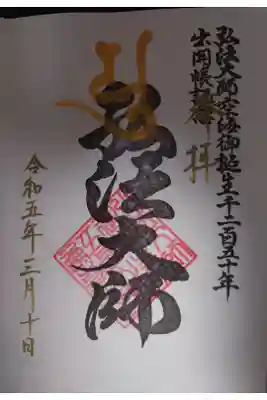 弘法大師空海御誕生千二百五十年
出開帳記
奉拝
弘法大師
令和五年三月十日